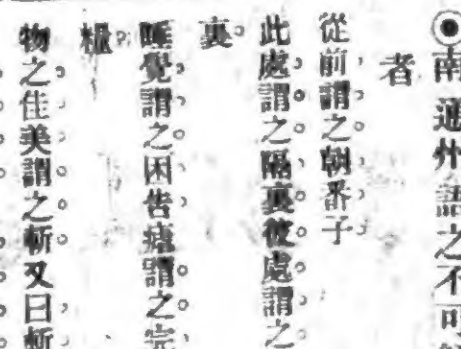 ◉南通州語之不可
者
從前謂之朝番子
此處謂之隔裏彼處謂之
裏
睡覺謂之困告瘧謂之完
糧
物之佳美謂之斬又曰斬